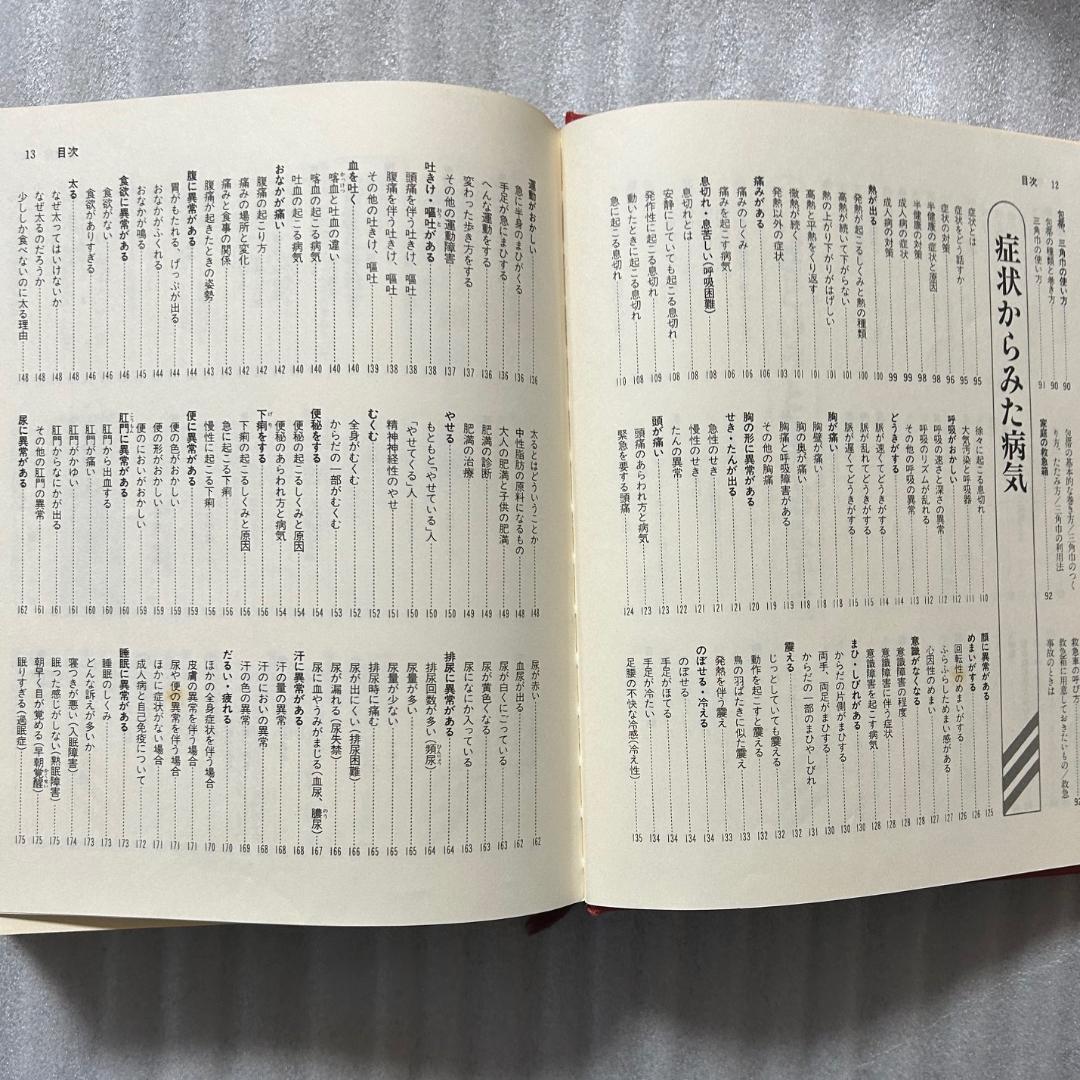 目次 12
包帯、三角巾の使い方……90
包帯の種類と巻き方……90
三角巾の使い方……91
家庭の救急箱……92
包帯の基本的な巻き方／三角巾のつく
り方、たたみ方／三角巾の利用法
救急車の呼び方
救急箱に用意しておきたいもの／救急
事故のときは
症状からみた病気
症状とは……95
症状をどう話すか……96
症状の対策……96
半健康の症状と原因……98
半健康の対策……98
成人病の症状……99
成人病の対策……99
熱が出る……100
発熱が起こるしくみと熱の種類……100
高熱が続いて下がらない……100
熱の上がり下がりがはげしい……101
高熱と平熱をくり返す……101
微熱が続く……101
発熱以外の症状……103
痛みがある……106
痛みのしくみ……106
痛みを起こす病気……106
息切れ・息苦しい(呼吸困難)……108
息切れとは……108
安静にしていても起こる息切れ……108
発作性に起こる息切れ……109
動いたときに起こる息切れ……108
急に起こる息切れ……110
徐々に起こる息切れ……110
大気汚染と呼吸器……111
呼吸がおかしい……112
呼吸の速さと深さの異常……112
呼吸のリズムが乱れる……112
その他の呼吸の異常……113
どうきがする……114
脈が速くてどうきがする……114
脈が乱れてどうきがする……115
脈が遅くてどうきがする……115
胸が痛い……118
胸壁が痛い……118
胸の奥が痛い……118
胸痛と呼吸障害がある……119
その他の胸痛……119
胸の形に異常がある……120
せき・たんが出る……121
急性のせき……121
慢性のせき……121
たんの異常……122
頭が痛い……123
頭痛のあらわれ方と病気……123
緊急を要する頭痛……124
顔に異常がある……125
めまいがする……126
回転性のめまいがする……126
ふらふらしためまい感がある……127
心因性のめまい……127
意識がなくなる……128
意識障害の程度……128
意識障害に伴う症状……128
意識障害を起こす病気……128
まひ・しびれがある……130
からだの片側がまひする……130
両手、両足がまひする……130
からだの一部のまひやしびれ……131
震える……132
じっとしていても震える……132
動作を起こすと震える……132
鳥の羽ばたきに似た震え……133
発熱を伴う震え……133
のぼせる・冷える……134
のぼせる……134
手足がほてる……134
手足が冷たい……134
足腰の不快な冷感(冷え性)……135
13 目次
運動がおかしい……136
急に半身のまひがくる……136
手足が急にまひする……136
へんな運動をする……136
変わった歩き方をする……137
その他の運動障害……137
吐きけ・嘔吐がある……138
頭痛を伴う吐きけ、嘔吐……138
腹痛を伴う吐きけ、嘔吐……138
その他の吐きけ、嘔吐……139
血を吐く……140
喀血と吐血の違い……140
喀血の起こる病気……140
吐血の起こる病気……140
おなかが痛い……142
腹痛の起こり方……142
痛みの場所と変化……142
痛みと食事の関係……143
腹痛が起きたときの姿勢……143
腹に異常がある……144
胃がもたれる、げっぷが出る……144
おなかがふくれる……144
おなかが鳴る……145
食欲に異常がある……146
食欲がない……146
食欲がありすぎる……146
太る……148
なぜ太ってはいけないか……148
なぜ太るのだろうか……148
少ししか食べないのに太る理由……148
太るとはどういうことか……148
中性脂肪の原料になるもの……148
大人の肥満と子供の肥満……149
肥満の診断……149
肥満の治療……149
やせる……150
もともと「やせている」人……150
「やせてくる」人……150
精神神経性のやせ……151
むくむ……152
全身がむくむ……152
からだの一部がむくむ……153
便秘をする……154
便秘の起こるしくみと原因……154
便秘のあらわれ方と病気……154
下痢をする……156
下痢の起こるしくみと原因……156
急に起こる下痢……156
慢性に起こる下痢……156
便に異常がある……159
便の色がおかしい……159
便の形がおかしい……159
便のにおいがおかしい……159
肛門に異常がある……160
肛門から出血する……160
肛門が痛い……160
肛門がかゆい……161
肛門からなにかが出る……161
その他の肛門の異常……161
尿に異常がある……162
尿が赤い……162
血尿が出る……162
尿が白くにごっている……163
尿が黄色くなる……163
尿になにか入っている……163
排尿に異常がある……164
排尿回数が多い(頻尿)……164
尿量が多い……165
尿量が少ない……165
排尿時に痛む……165
尿が出にくい(排尿困難)……166
尿が漏れる(尿失禁)……166
尿に血やうみがまじる(血尿、膿尿)……167
汗に異常がある……168
汗の量の異常……168
汗のにおいの異常……168
汗の色の異常……169
だるい・疲れる……170
ほかの全身症状を伴う場合……170
皮膚の異常を伴う場合……171
尿や便の異常を伴う場合……171
ほかに症状がない場合……171
成人病と自己免疫について……172
睡眠に異常がある……173
睡眠のしくみ……173
どんな訴えが多いか……173
寝つきが悪い(入眠障害)……174
眠った感じがしない(熟眠障害)……175
朝早く目が覚める(早朝覚醒)……175
眠りすぎる(過眠症)……175